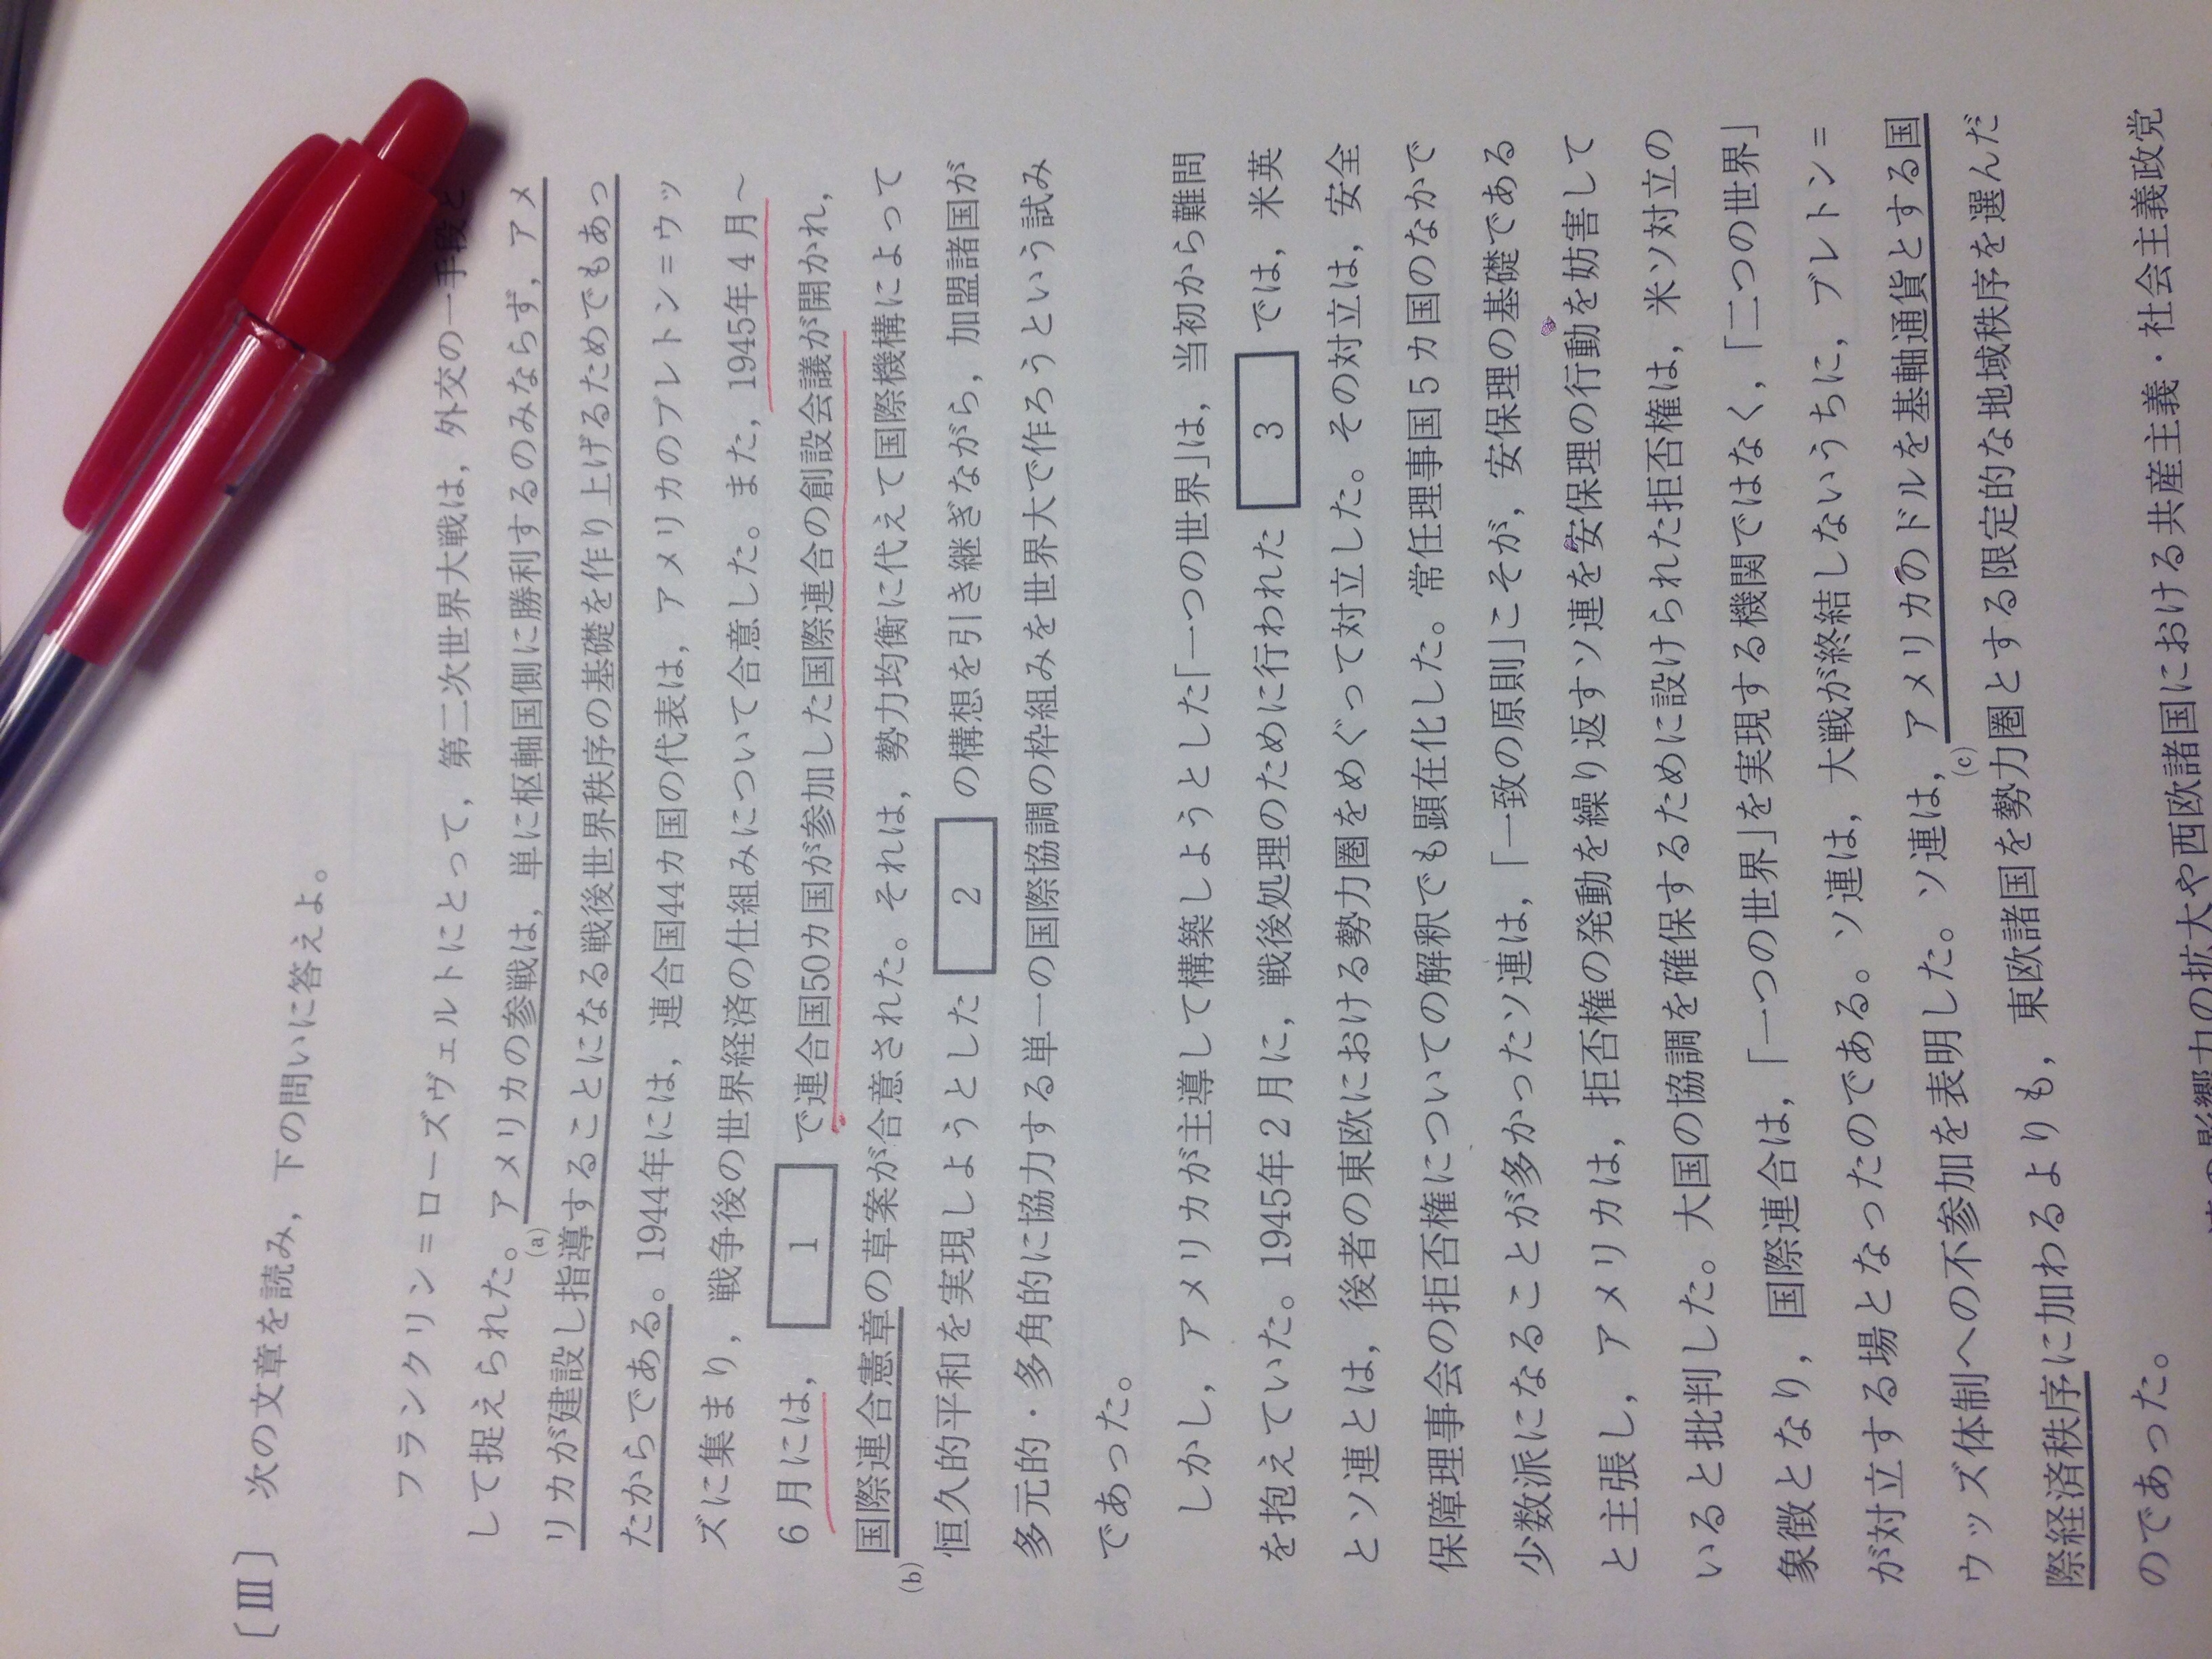 〔Ⅲ〕 次の文章を読み，下の問いに答えよ。
フランクリン＝ローズヴェルトにとって，第二次世界大戦は，外交の一手段と
して捉えられた。アメリカの参戦は，単に枢軸国側に勝利するのみならず，アメ
(a)
リカが建設し指導することになる戦後世界秩序の基礎を作り上げるためでもあっ
たからである。1944年には，連合国44カ国の代表は，アメリカのブレトン＝ウッ
ズに集まり，戦争後の世界経済の仕組みについて合意した。また，1945年4月～
6月には， 1 で連合国50カ国が参加した国際連合の創設会議が開かれ，
国際連合憲章の草案が合意された。それは，勢力均衡に代えて国際機構によって
(b)
恒久的平和を実現しようとした 2 の構想を引き継ぎながら，加盟諸国が
多元的・多角的に協力する単一の国際協調の枠組みを世界大で作ろうという試み
であった。
しかし，アメリカが主導して構築しようとした「一つの世界」は，当初から難問
を抱えていた。1945年2月に，戦後処理のために行われた 3 では，米英
とソ連とは，後者の東欧における勢力圏をめぐって対立した。その対立は，安全
保障理事会の拒否権についての解釈でも顕在化した。常任理事国5カ国のなかで
少数派になることが多かったソ連は，「一致の原則」こそが，安保理の基礎である
と主張し，アメリカは，拒否権の発動を繰り返すソ連を安保理の行動を妨害して
いると批判した。大国の協調を確保するために設けられた拒否権は，米ソ対立の
象徴となり，国際連合は，「一つの世界」を実現する機関ではなく，「二つの世界」
が対立する場となったのである。ソ連は，大戦が終結しないうちに，ブレトン＝
ウッズ体制への不参加を表明した。ソ連は，アメリカのドルを基軸通貨とする国
(c)
際経済秩序に加わるよりも，東欧諸国を勢力圏とする限定的な地域秩序を選んだ
のであった。
の影響力の拡大や西欧諸国における共産主義・社会主義政党